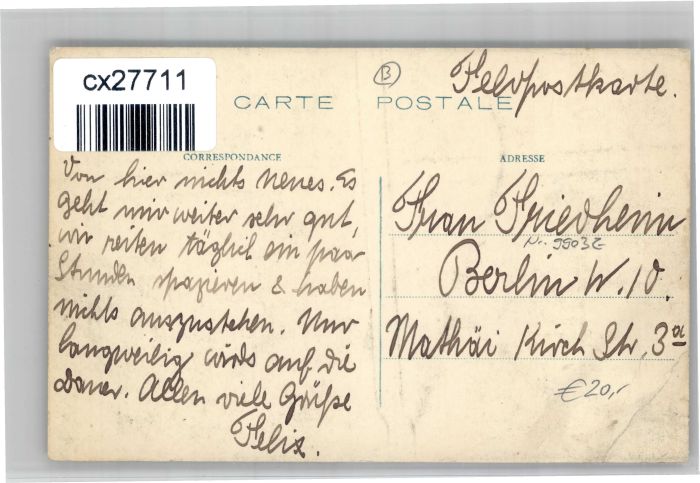 cx27711
B
Feldpostkarte.
CARTE POSTALE
CORRESPONDANCE
ADRESSE
Von hier nichts neues. Es
geht mir weiter sehr gut,
wir reiten täglich ein paar
Stunden spazieren & haben
nichts auszustehen. Nur
langweilig wirds auf die
Dauer. Allen viele Grüße
Felix.
Frau Friedheim
Nr. 99032
Berlin W. 10.
Mathäi Kirch Str. 3a
€20,-